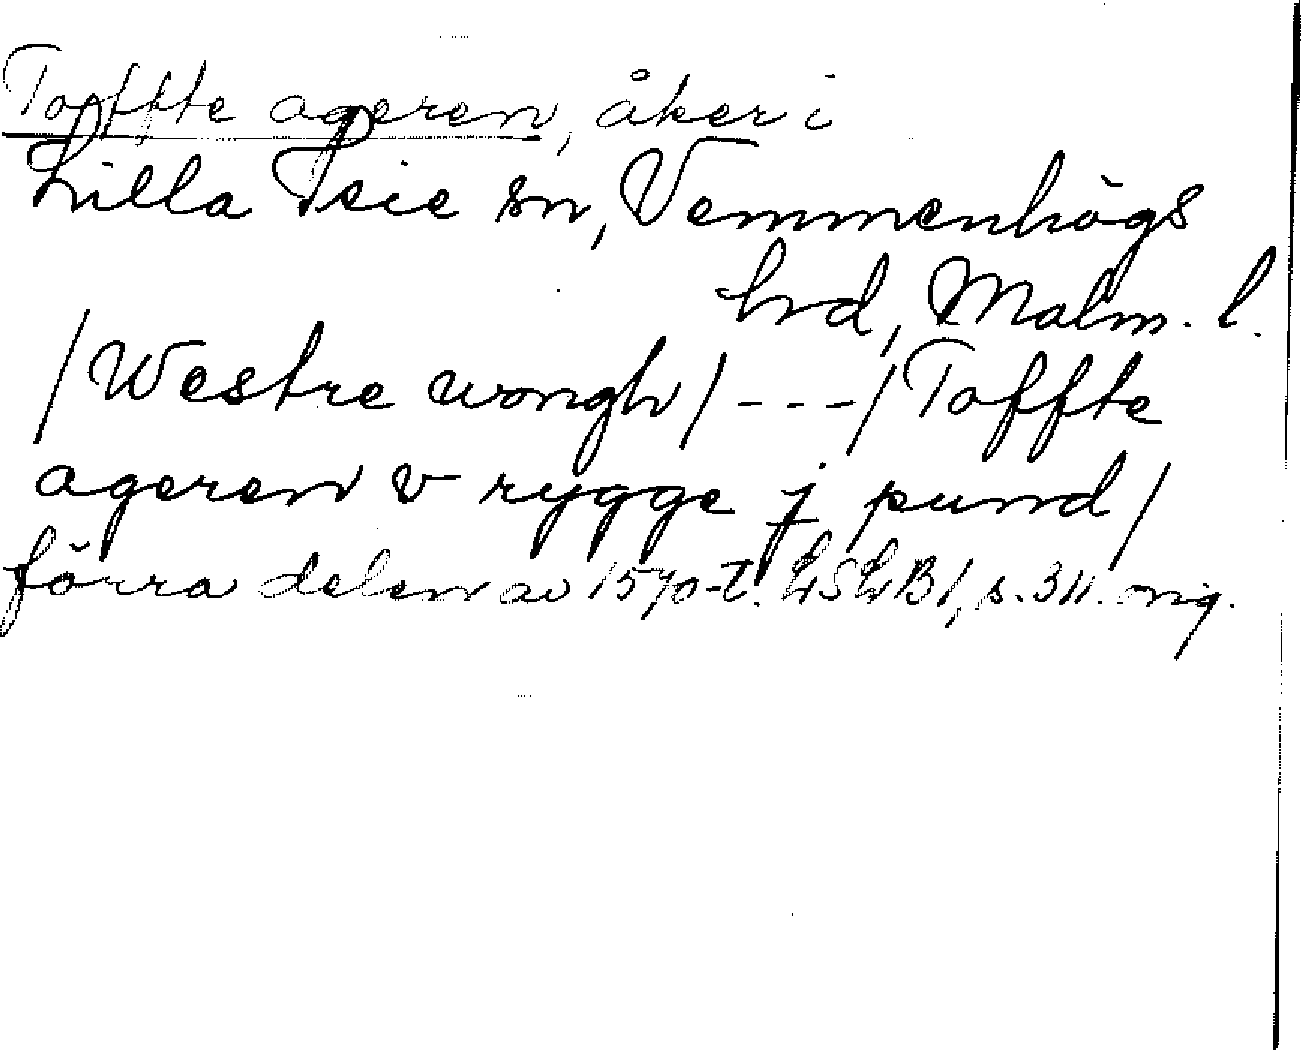 Toffte ageren, åker i
Lilla Isie sn, Vemmenhögs
hd, Malm. l.
/Westre wongh/ - - - /Toffte
ageren v rygge j pund/
förra delen av 1570-t. LSLB1, s. 311. orig.